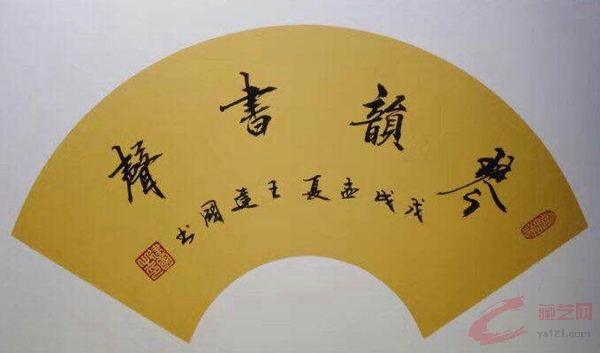 琴韻書聲
戊戌孟夏王建國书
藏艺网
ys121.com